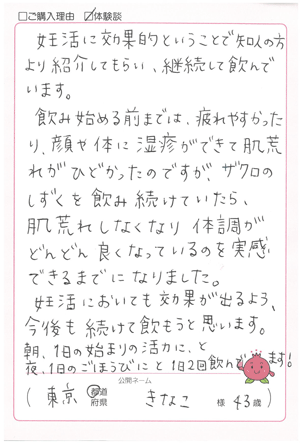 □ご購入理由 ☑体験談
妊活に効果的ということで知人の方
より紹介してもらい、継続して飲んで
います。
飲み始める前までは、疲れやすかった
り、顔や体に湿疹ができて肌荒
れがひどかったのですが、ザクロの
しずくを飲み続けていたら、
肌荒れしなくなり体調が
どんどん良くなっているのを実感
できるまでになりました。
妊活においても効果が出るよう、
今後も続けて飲もうと思います。
朝、1日の始まりの活力に、と
夜、1日のごほうびにと1日2回飲んでます!
公開ネーム
(東京 都道府県 きなこ 様 43歳)